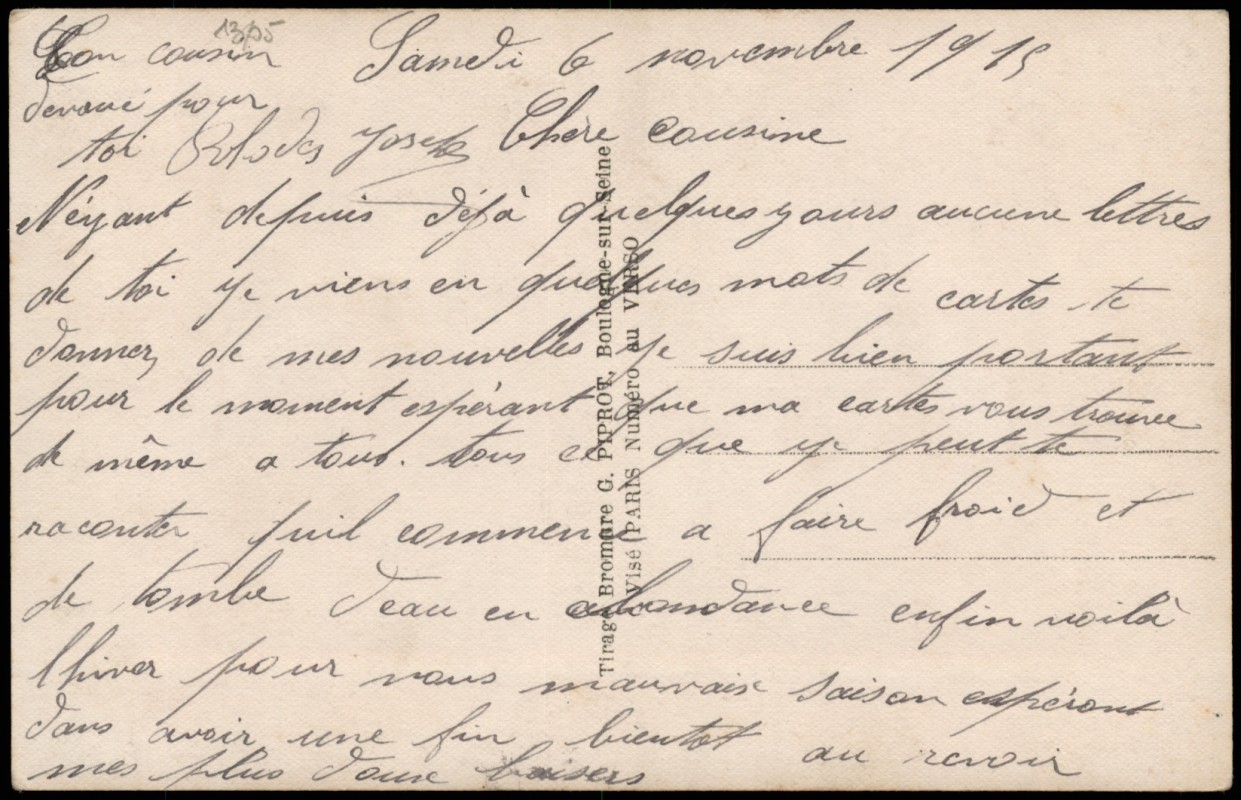 13p5
Ton cousin
devoué pour
toi Joseph
Samedi 6 novembre 1915
Chere cousine
N'éyant depuis déjà quelques yours aucune lettres
de toi ye viens en quelques mots de cartes te
donner de mes nouvelles ye suis bien portant
pour le moment espérant que ma cartes vous trouve
de même a tous. tous ce que ye peut te
raconter quil commence a faire froid et
de tombe deau en abondance enfin voilà
lhiver pour nous mauvaise saison espéront
dans avoir une fin bientot au revoir
mes plus doux baisers
Tirage Bromure G. PIPROT, Boulogne-sur-Seine
Visé PARIS Numéro au VERSO